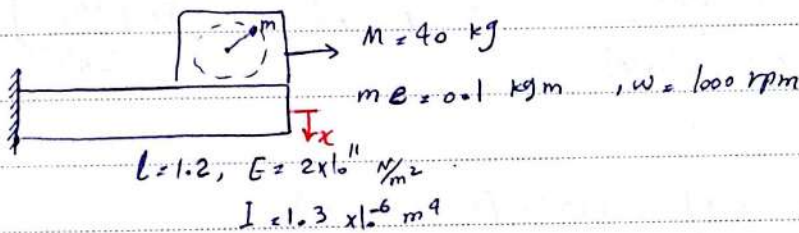 m
M = 40 kg
me = 0.1 kgm , ω = 1000 rpm
x
l = 1.2, E = 2x10¹¹ N/m²
I = 1.3 x10⁻⁶ m⁴